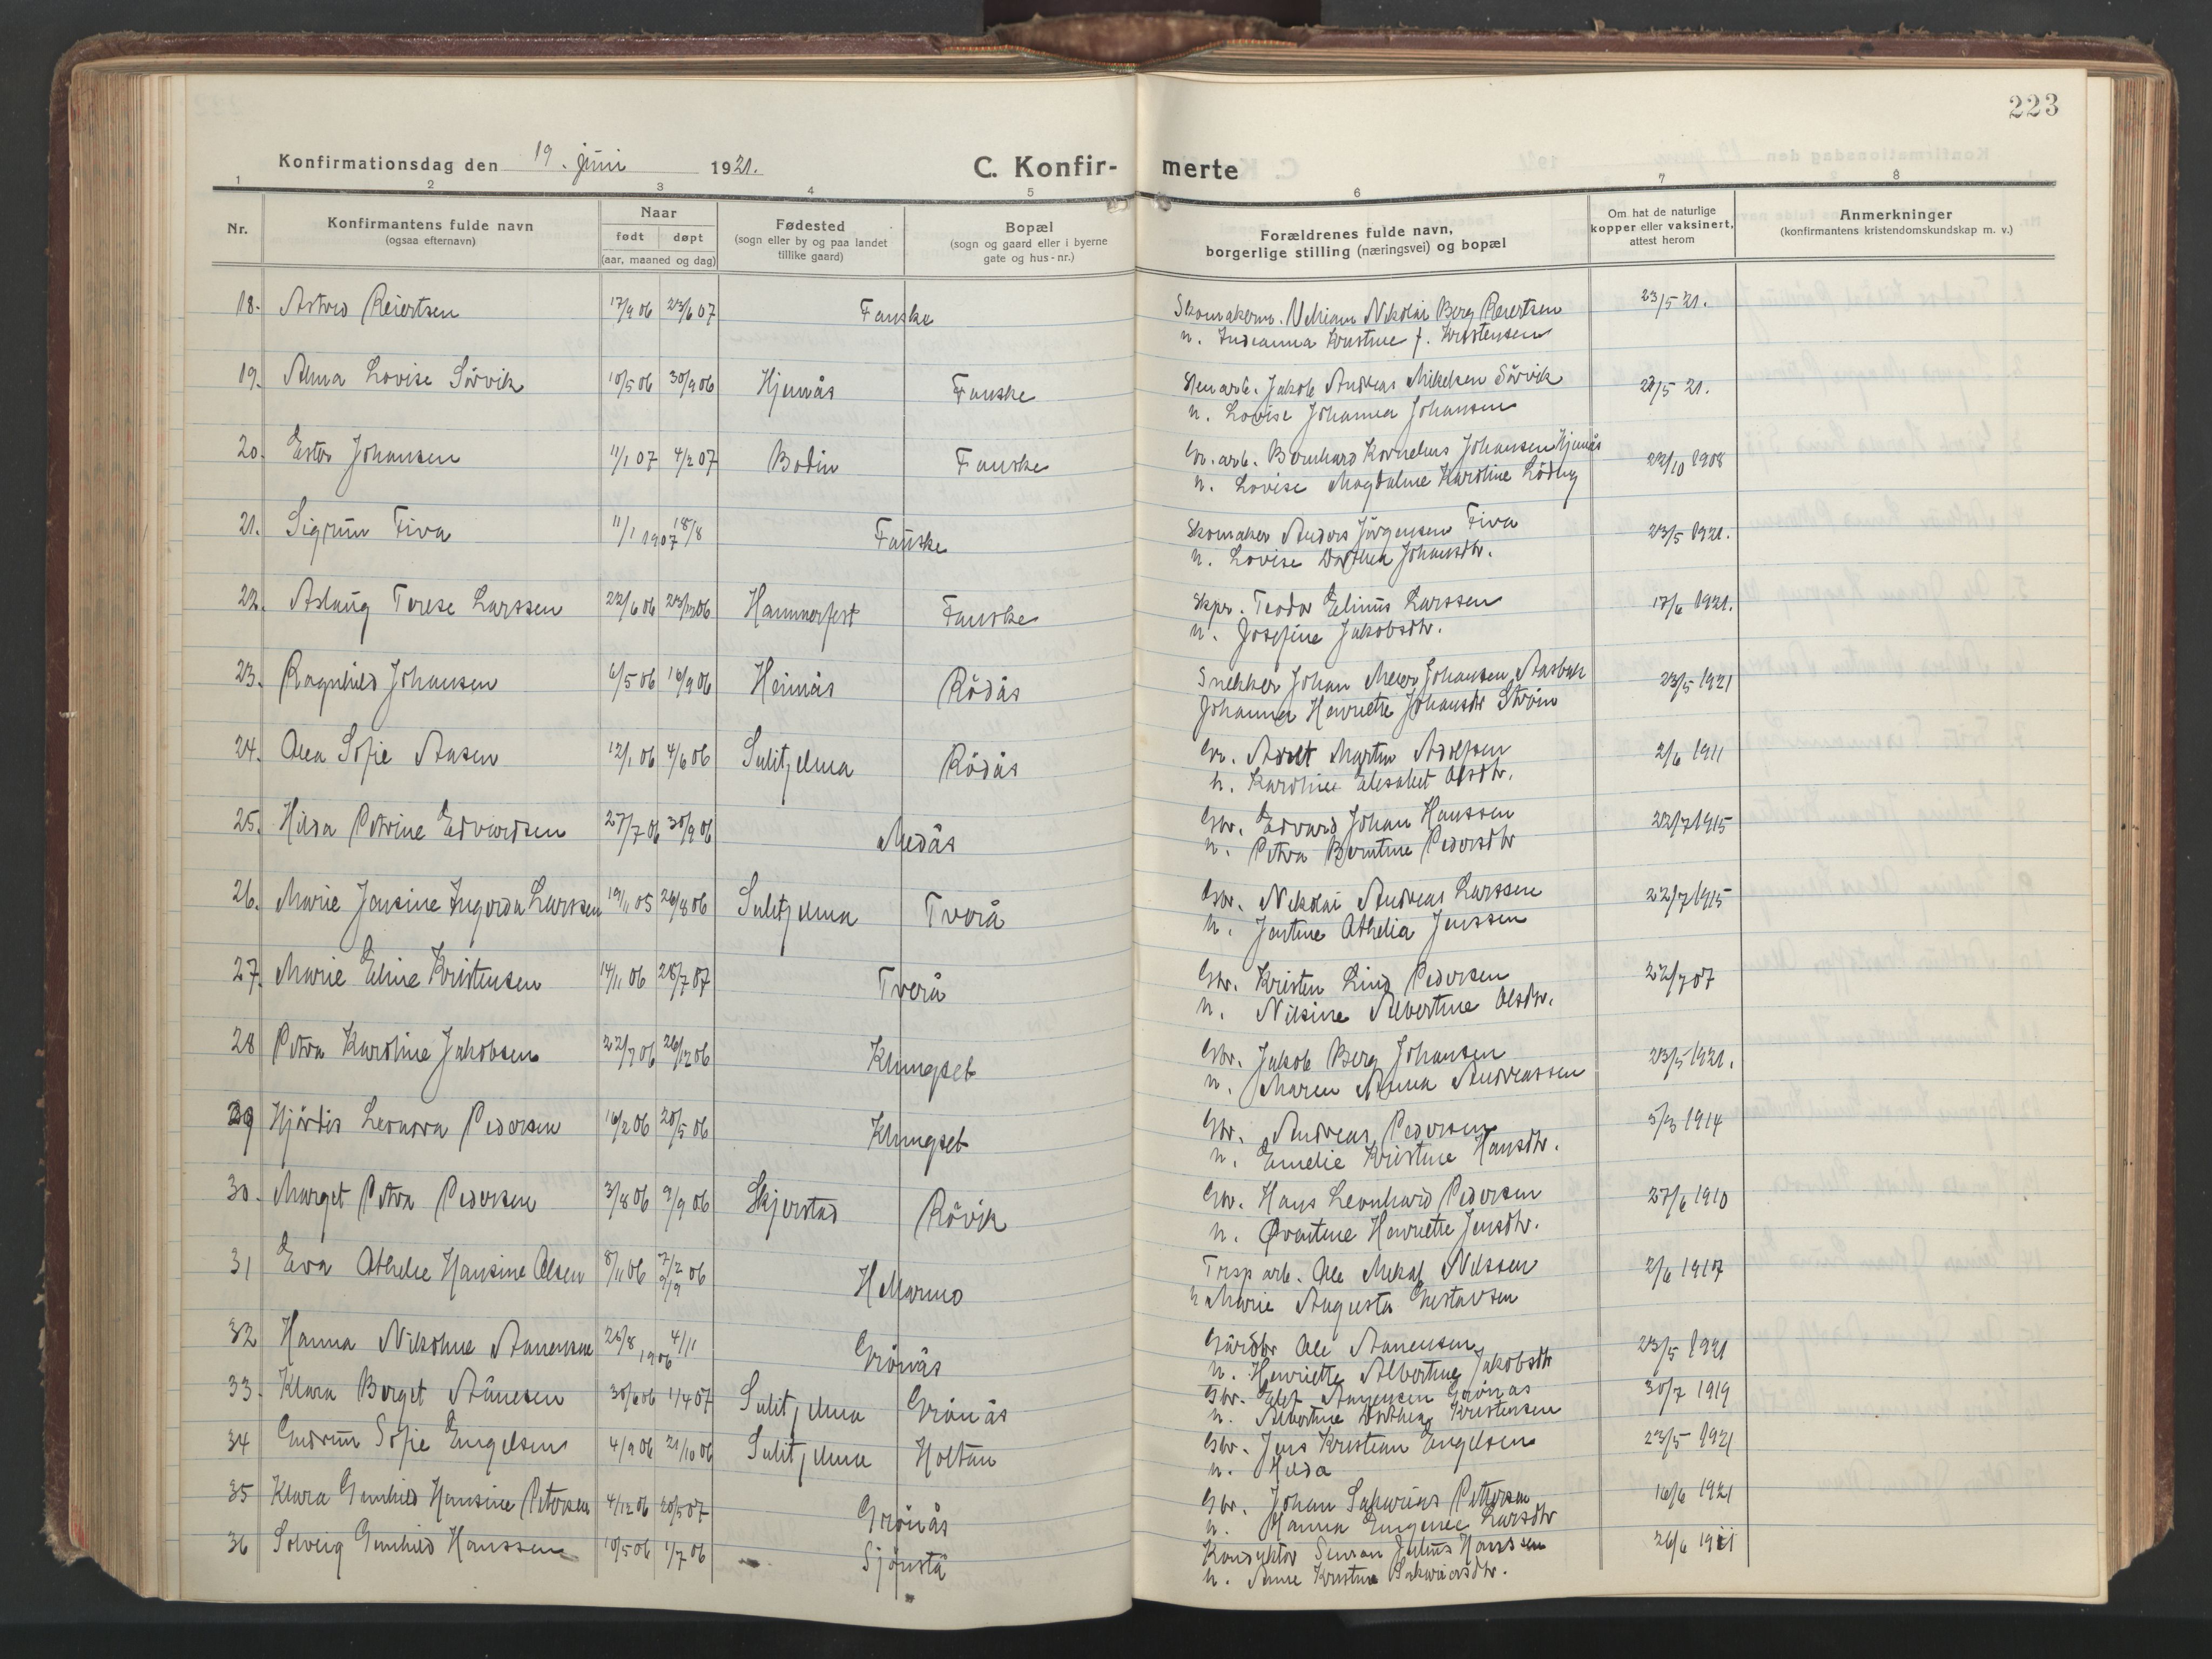 223
Konfirmationsdag den 19. juni 1921. C. Konfir- merte
1 2 3 4 5 6 7 8
Nr. Konfirmantens fulde navn (ogsaa efternavn) Naar født døpt (aar, maaned og dag) Fødested (sogn eller by og paa landet tillike gaard) Bopæl (sogn og gaard eller i byerne gate og hus-nr.) Forældrenes fulde navn, borgerlige stilling (næringsvei) og bopæl Om hat de naturlige kopper eller vaksinert, attest herom Anmerkninger (konfirmantens kristendomskundskap m. v.)
18. Astrid Reiertsen 17/9 06 23/6 07 Fauske Skomakerm. Nikolai Berg Reiertsen 23/5 21.
n. Indianna Kristine f. Kristensen
19. Alma Lovise Sörvik 10/5 06 30/9 06 Hjemås Fauske Jakob Andreas Mikelsen Sörvik 23/5 21.
n. Lovise Johanna Johansen
20. Ester Johansen 11/1 07 4/2 07 Bodin Fauske Gr. arb. Bernhard Kornelius Johansen Hjemås 22/10 1908
n. Lovise Magdalene Karoline Löding
21. Sigrun Fiva 11/1 1907 18/8 Fauske Skomaker Anders Jörgensen Fiva 23/5 1921.
n. Lovise Dorthea Johansdtr.
22. Aslaug Terese Larssen 22/6 06 23/12 06 Hammerfest Fauske Skpr. Teodor Elinus Larssen 17/6 1921.
n. Josefine Jakobsdtr.
23. Ragnhild Johansen 6/5 06 16/9 06 Heimås Rödås Snekker Johan Meier Johansen Aasbak 23/5 1921
Johanna Henriette Johansdtr Ström
24. Olea Sofie Aasen 12/1 06 4/6 06 Sulitjelma Rödås Gr. Adolf Martin Adolfsen 2/6 1911
n. Karoline Elisabet Olsdtr.
25. Hilda Petrine Edvardsen 27/7 06 30/9 06 Medås Gbr. Edvard Johan Hanssen 22/7 1915
n. Petra Berntine Pedersdtr
26. Marie Jensine Ingvarda Larssen 19/11 05 26/8 06 Sulitjelma Tverå Gbr. Nikolai Andreas Larssen 22/7 1915
n. Jentine Othelia Jenssen
27. Marie Eline Kristensen 14/11 06 28/7 07 Tverå Gbr. Kristen Lind Pedersen 22/7 07
n. Nilsine Albertine Olsdtr.
28 Petra Karoline Jakobsen 22/7 06 26/12 06 Klungset Gbr. Jakob Berg Johansen 23/5 1921.
n. Maren Anna Andreassen
29 Hjördis Leonora Pedersen 16/2 06 20/5 06 Klungset Gbr. Andreas Pedersen 5/3 1914
n. Emelie Kristine Hansdtr.
30. Marget Petra Pedersen 3/8 06 9/9 06 Skjerstad Rövik Gbr. Hans Leonhard Pedersen 27/6 1910
n. Henriette Jensdtr.
31 Eva Othelie Hansine Olsen 8/11 06 Hellarmo Trsp arb. Ole Mikal Nilssen 2/6 1917
n Marie Augusta Gustavsen
32 Hanna Nikoline Aanensen 26/8 1906 4/11 Grönås Gårdbr Ole Aanensen 23/5 1921
n. Henriette Albertine Jakobsdtr
33. Klara Berget Aanesen 30/6 06 1/4 07 Sulitjelma Grönås Gbr. Elef Aanensen Grönås 30/7 1919
n. Albertine Dorthea Kristensen
34 Gudrun Sofie Engelsen 4/9 06 21/10 06 Sulitjelma Holtan Gbr. Jens Kristian Engelsen 23/5 1921
n. Hilda
35 Klara Gunhild Hansine Petersen 4/12 06 20/5 07 Grönås Gbr. Johan Sakarias Petersen 16/6 1921
n. Hanna Eugenie Larsdtr
36 Solveig Gunhild Hanssen 10/5 06 1/7 06 Sjönstå Konduktör Julius Hanssen 26/6 1911
n. Anne Kristine Sakariasdtr.